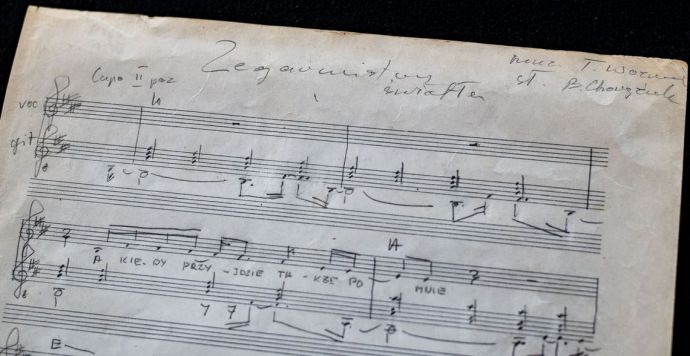 Zegarmistrz
muz. T. Woźniak
Capo II poz światła sł. B. Chorążuk
voc A
git
A KIE-DY PRZY-JDZIE TA-KŻE PO MNIE
A
E